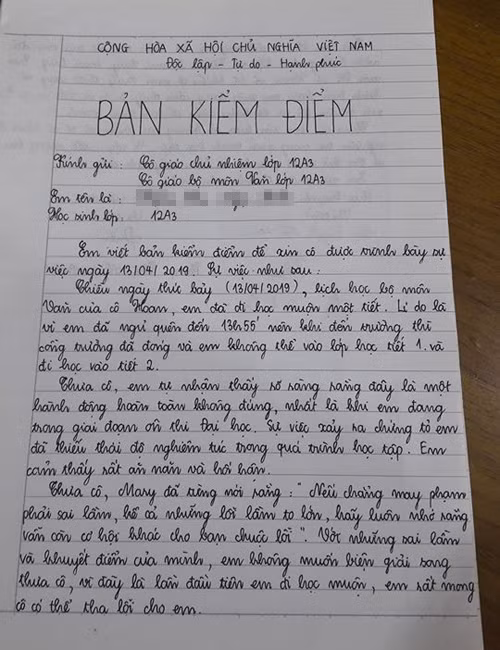 CỘNG HÒA XÃ HỘI CHỦ NGHĨA VIỆT NAM
Độc lập - Tự do - Hạnh phúc
BẢN KIỂM ĐIỂM
Kính gửi : Cô giáo chủ nhiệm lớp 12A3
Cô giáo bộ môn Văn lớp 12A3
Em tên là :
Học sinh lớp : 12A3
Em viết bản kiểm điểm để xin cô được trình bày sự
việc ngày 13/04/2019. Sự việc như sau :
Chiều ngày thức bảy (13/04/2019), lịch học bộ môn
Văn của cô Hoan, em đã đi học muộn một tiết. Lí do là
vì em đã ngủ quên đến 13h55' nên khi đến trường thì
cổng trường đã đóng và em không thể vào lớp học tiết 1 và
đi học vào tiết 2.
Thưa cô, em tự nhận thấy số rằng rằng đây là một
hành động hoàn toàn không đúng, nhất là khi em đang
trong giai đoạn ôn thi Đại học. Sự việc xảy ra chứng tỏ em
đã thiếu thái độ nghiêm túc trong quá trình học tập. Em
cảm thấy rất ăn năn và hối hận.
Thưa cô, Mary đã từng nói rằng : " Nếu chẳng may phạm
phải sai lầm, kể cả những lỗi lầm to lớn, hãy luôn nhớ rằng
vẫn còn cơ hội khác cho bạn chuộc lỗi ". Với những sai lầm
và khuyết điểm của mình, em không muốn biện giải song
thưa cô, vì đây là lần đầu tiên em đi học muộn, em rất mong
cô có thể tha lỗi cho em.